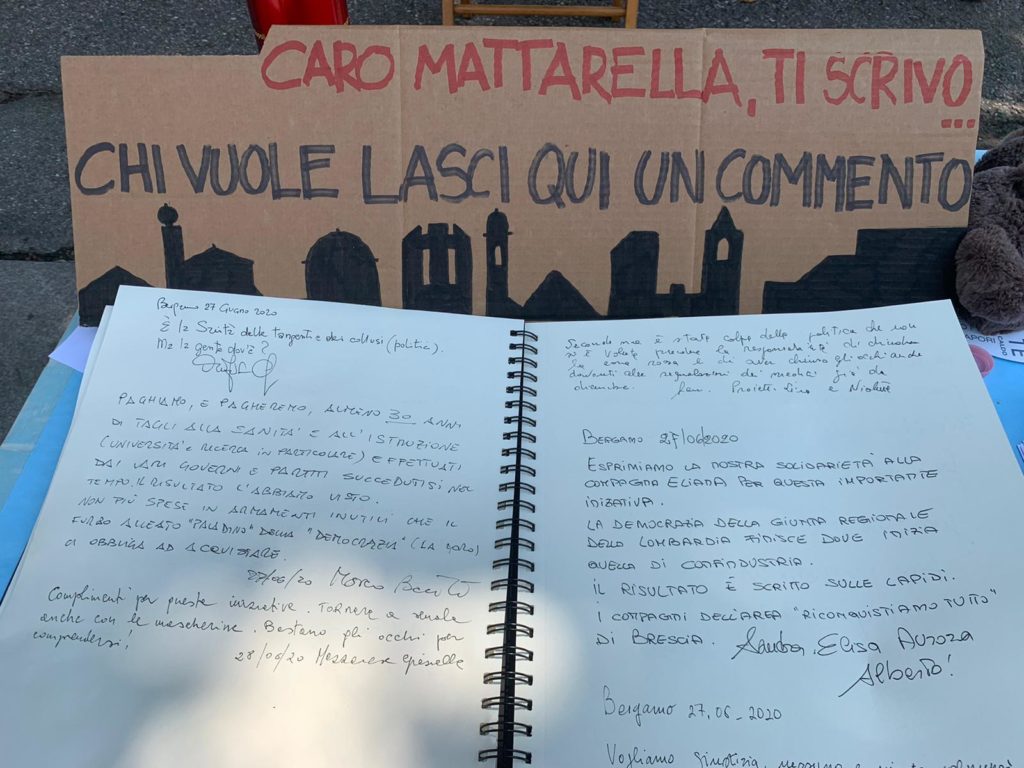 CARO MATTARELLA, TI SCRIVO
...
CHI VUOLE LASCI QUI UN COMMENTO
Bergamo 27 Giugno 2020
È la Sanità delle tangenti e dei collusi (politici).
Ma la gente dov'è?
PAGHIAMO, E PAGHEREMO, ALMENO 30 ANNI
DI TAGLI ALLA SANITA' E ALL'ISTRUZIONE
(UNIVERSITA' E RICERCA IN PARTICOLARE) EFFETTUATI
DAI VARI GOVERNI E PARTITI SUCCEDUTISI NEL
TEMPO. IL RISULTATO L'ABBIAMO VISTO.
NON PIÙ SPESE IN ARMAMENTI INUTILI CHE IL
FURBO ALLEATO "PALADINO" DELLA "DEMOCRAZIA" (LA LORO)
CI OBBLIGA AD ACQUISTARE.
27/06/20 Marco
Complimenti per queste iniziative. TORNARE a scuola
anche con le mascherine. Bastano gli occhi per
comprendersi!
28/06/20
Secondo me è stata colpa della politica che non
si è voluta prendere la responsabilità di chiudere
la zona rossa e chi aveva chiuso gli occhi anche
davanti alle segnalazioni dei medici già da
dicembre.
BERGAMO 27/06/2020
ESPRIMIAMO LA NOSTRA SOLIDARIETÀ ALLA
COMPAGNA ELIANA PER QUESTA IMPORTANTE
INIZIATIVA.
LA DEMOCRAZIA DELLA GIUNTA REGIONALE
DELLA LOMBARDIA FINISCE DOVE INIZIA
QUELLA DI CONFINDUSTRIA.
IL RISULTATO È SCRITTO SULLE LAPIDI.
I COMPAGNI DELL'AREA "RICONQUISTIAMO TUTTO"
DI BRESCIA. Sandra, Elisa Aurora
Alberto!
Bergamo 27.06_2020
Vogliamo giustizia,